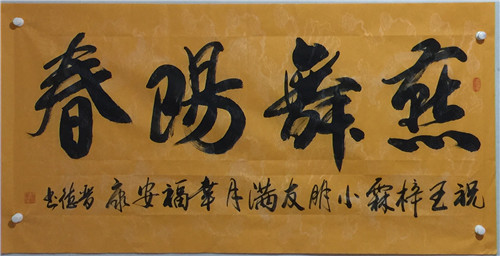 燕舞陽春
祝王梓霖小朋友满月幸福安康 德书